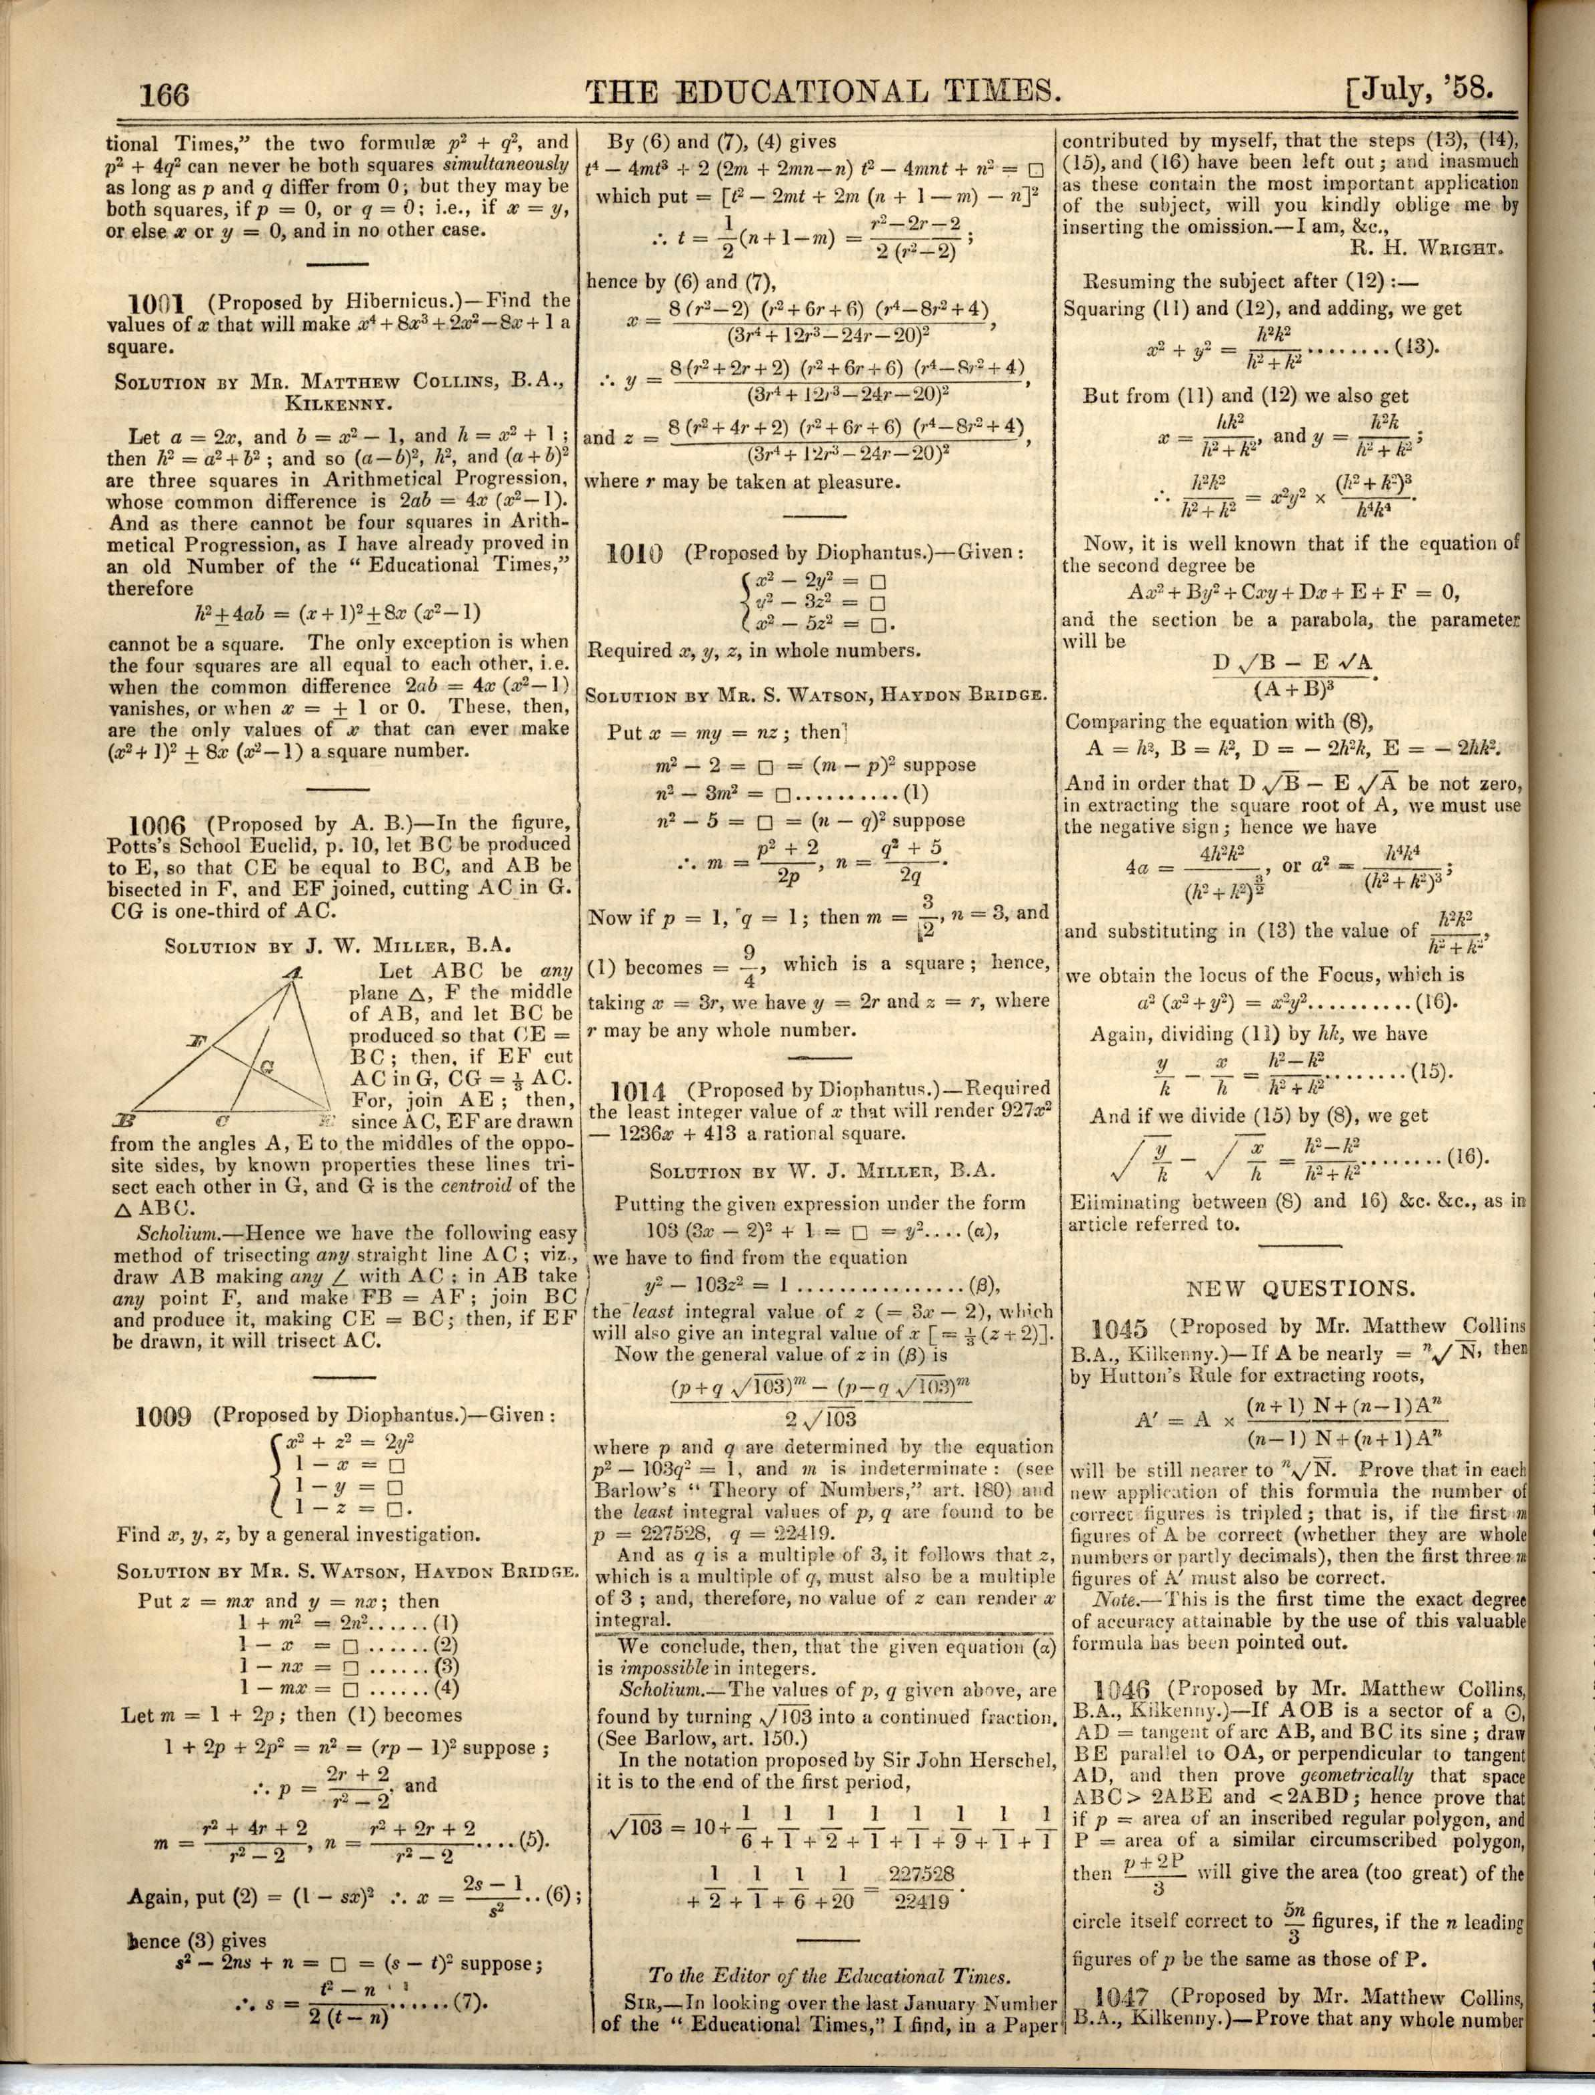 166
THE EDUCATIONAL TIMES.
[July, '58.
tional Times," the two formulæ p² + q², and
p² + 4q² can never be both squares simultaneously
as long as p and q differ from 0; but they may be
both squares, if p = 0, or q = 0; i.e., if x = y,
or else x or y = 0, and in no other case.
1001 (Proposed by Hibernicus.)—Find the
values of x that will make x⁴ + 8x³ + 2x² — 8x + 1 a
square.
SOLUTION BY MR. MATTHEW COLLINS, B.A.,
KILKENNY.
Let a = 2x, and b = x² — 1, and h = x² + 1;
then h² = a² + b²; and so (a — b)², h², and (a + b)²
are three squares in Arithmetical Progression,
whose common difference is 2ab = 4x (x² — 1).
And as there cannot be four squares in Arith-
metical Progression, as I have already proved in
an old Number of the "Educational Times,"
therefore
h² ± 4ab = (x + 1)² ± 8x (x² — 1)
cannot be a square. The only exception is when
the four squares are all equal to each other, i.e.
when the common difference 2ab = 4x (x² — 1)
vanishes, or when x = ± 1 or 0. These, then,
are the only values of x that can ever make
(x² + 1)² ± 8x (x² — 1) a square number.
1006 (Proposed by A. B.)—In the figure,
Potts's School Euclid, p. 10, let BC be produced
to E, so that CE be equal to BC, and AB be
bisected in F, and EF joined, cutting AC in G.
CG is one-third of AC.
SOLUTION BY J. W. MILLER, B.A.
A
F
G
B C E
Let ABC be any
plane △, F the middle
of AB, and let BC be
produced so that CE =
BC; then, if EF cut
AC in G, CG = ⅓ AC.
For, join AE; then,
since AC, EF are drawn
from the angles A, E to the middles of the oppo-
site sides, by known properties these lines tri-
sect each other in G, and G is the centroid of the
△ ABC.
Scholium.—Hence we have the following easy
method of trisecting any straight line AC; viz.,
draw AB making any ∠ with AC; in AB take
any point F, and make FB = AF; join BC
and produce it, making CE = BC; then, if EF
be drawn, it will trisect AC.
1009 (Proposed by Diophantus.)—Given:
x² + z² = 2y²
1 — x = □
1 — y = □
1 — z = □.
Find x, y, z, by a general investigation.
SOLUTION BY MR. S. WATSON, HAYDON BRIDGE.
Put z = mx and y = nx; then
1 + m² = 2n²......(1)
1 — x = □ ......(2)
1 — nx = □ ......(3)
1 — mx = □ ......(4)
Let m = 1 + 2p; then (1) becomes
1 + 2p + 2p² = n² = (rp — 1)² suppose;
∴ p = (2r + 2)/(r² — 2), and
m = (r² + 4r + 2)/(r² — 2), n = (r² + 2r + 2)/(r² — 2)....(5).
Again, put (2) = (1 — sx)² ∴ x = (2s — 1)/s² ..(6);
hence (3) gives
s² — 2ns + n = □ = (s — t)² suppose;
∴ s = (t² — n)/(2 (t — n)) ......(7).
By (6) and (7), (4) gives
t⁴ — 4mt³ + 2 (2m + 2mn — n) t² — 4mnt + n² = □
which put = [t² — 2mt + 2m (n + 1 — m) — n]²
∴ t = 1/2 (n + 1 — m) = (r² — 2r — 2)/(2 (r² — 2));
hence by (6) and (7),
x = 8 (r² — 2) (r² + 6r + 6) (r⁴ — 8r² + 4)/(3r⁴ + 12r³ — 24r — 20)²,
∴ y = 8 (r² + 2r + 2) (r² + 6r + 6) (r⁴ — 8r² + 4)/(3r⁴ + 12r³ — 24r — 20)²,
and z = 8 (r² + 4r + 2) (r² + 6r + 6) (r⁴ — 8r² + 4)/(3r⁴ + 12r³ — 24r — 20)²,
where r may be taken at pleasure.
1010 (Proposed by Diophantus.)—Given:
x² — 2y² = □
y² — 3z² = □
x² — 5z² = □.
Required x, y, z, in whole numbers.
SOLUTION BY MR. S. WATSON, HAYDON BRIDGE.
Put x = my = nz; then
m² — 2 = □ = (m — p)² suppose
n² — 3m² = □..........(1)
n² — 5 = □ = (n — q)² suppose
∴ m = (p² + 2)/2p, n = (q² + 5)/2q.
Now if p = 1, q = 1; then m = 3/2, n = 3, and
(1) becomes = 9/4, which is a square; hence,
taking x = 3r, we have y = 2r and z = r, where
r may be any whole number.
1014 (Proposed by Diophantus.)—Required
the least integer value of x that will render 927x²
— 1236x + 413 a rational square.
SOLUTION BY W. J. MILLER, B.A.
Putting the given expression under the form
103 (3x — 2)² + 1 = □ = y²....(α),
we have to find from the equation
y² — 103z² = 1 ................(β),
the least integral value of z (= 3x — 2), which
will also give an integral value of x [= ⅓ (z + 2)].
Now the general value of z in (β) is
((p + q √103)ᵐ — (p — q √103)ᵐ)/(2 √103)
where p and q are determined by the equation
p² — 103q² = 1, and m is indeterminate: (see
Barlow's "Theory of Numbers," art. 180) and
the least integral values of p, q are found to be
p = 227528, q = 22419.
And as q is a multiple of 3, it follows that z,
which is a multiple of q, must also be a multiple
of 3; and, therefore, no value of z can render x
integral.
We conclude, then, that the given equation (α)
is impossible in integers.
Scholium.—The values of p, q given above, are
found by turning √103 into a continued fraction.
(See Barlow, art. 150.)
In the notation proposed by Sir John Herschel,
it is to the end of the first period,
√103 = 10 + 1/6 + 1/1 + 1/2 + 1/1 + 1/1 + 1/9 + 1/1 + 1/1
+ 1/2 + 1/1 + 1/6 + 1/20 = 227528/22419.
To the Editor of the Educational Times.
SIR,—In looking over the last January Number
of the "Educational Times," I find, in a Paper
contributed by myself, that the steps (13), (14),
(15), and (16) have been left out; and inasmuch
as these contain the most important application
of the subject, will you kindly oblige me by
inserting the omission.—I am, &c.,
R. H. WRIGHT.
Resuming the subject after (12):—
Squaring (11) and (12), and adding, we get
x² + y² = h²k²/(h² + k²) ........(13).
But from (11) and (12) we also get
x = hk²/(h² + k²), and y = h²k/(h² + k²);
∴ h²k²/(h² + k²) = x²y² × (h² + k²)³/h⁴k⁴.
Now, it is well known that if the equation of
the second degree be
Ax² + By² + Cxy + Dx + E + F = 0,
and the section be a parabola, the parameter
will be
(D √B — E √A)/(A + B)³.
Comparing the equation with (8),
A = h², B = k², D = — 2h²k, E = — 2hk².
And in order that D √B — E √A be not zero,
in extracting the square root of A, we must use
the negative sign; hence we have
4a = 4h²k²/(h² + k²)^(3/2), or a² = h⁴k⁴/(h² + k²)³;
and substituting in (13) the value of h²k²/(h² + k²),
we obtain the locus of the Focus, which is
a² (x² + y²) = x²y²..........(16).
Again, dividing (11) by hk, we have
y/k — x/h = (h² — k²)/(h² + k²)........(15).
And if we divide (15) by (8), we get
√(y/k) — √(x/h) = (h² — k²)/(h² + k²)........(16).
Eliminating between (8) and 16) &c. &c., as in
article referred to.
NEW QUESTIONS.
1045 (Proposed by Mr. Matthew Collins
B.A., Kilkenny.)—If A be nearly = ⁿ√N, then
by Hutton's Rule for extracting roots,
A′ = A × ((n + 1) N + (n — 1) Aⁿ)/((n — 1) N + (n + 1) Aⁿ)
will be still nearer to ⁿ√N. Prove that in each
new application of this formula the number of
correct figures is tripled; that is, if the first m
figures of A be correct (whether they are whole
numbers or partly decimals), then the first three m
figures of A′ must also be correct.
Note.—This is the first time the exact degree
of accuracy attainable by the use of this valuable
formula has been pointed out.
1046 (Proposed by Mr. Matthew Collins,
B.A., Kilkenny.)—If AOB is a sector of a ⊙,
AD = tangent of arc AB, and BC its sine; draw
BE parallel to OA, or perpendicular to tangent
AD, and then prove geometrically that space
ABC > 2ABE and < 2ABD; hence prove that
if p = area of an inscribed regular polygon, and
P = area of a similar circumscribed polygon,
then (p + 2P)/3 will give the area (too great) of the
circle itself correct to 5n/3 figures, if the n leading
figures of p be the same as those of P.
1047 (Proposed by Mr. Matthew Collins,
B.A., Kilkenny.)—Prove that any whole number